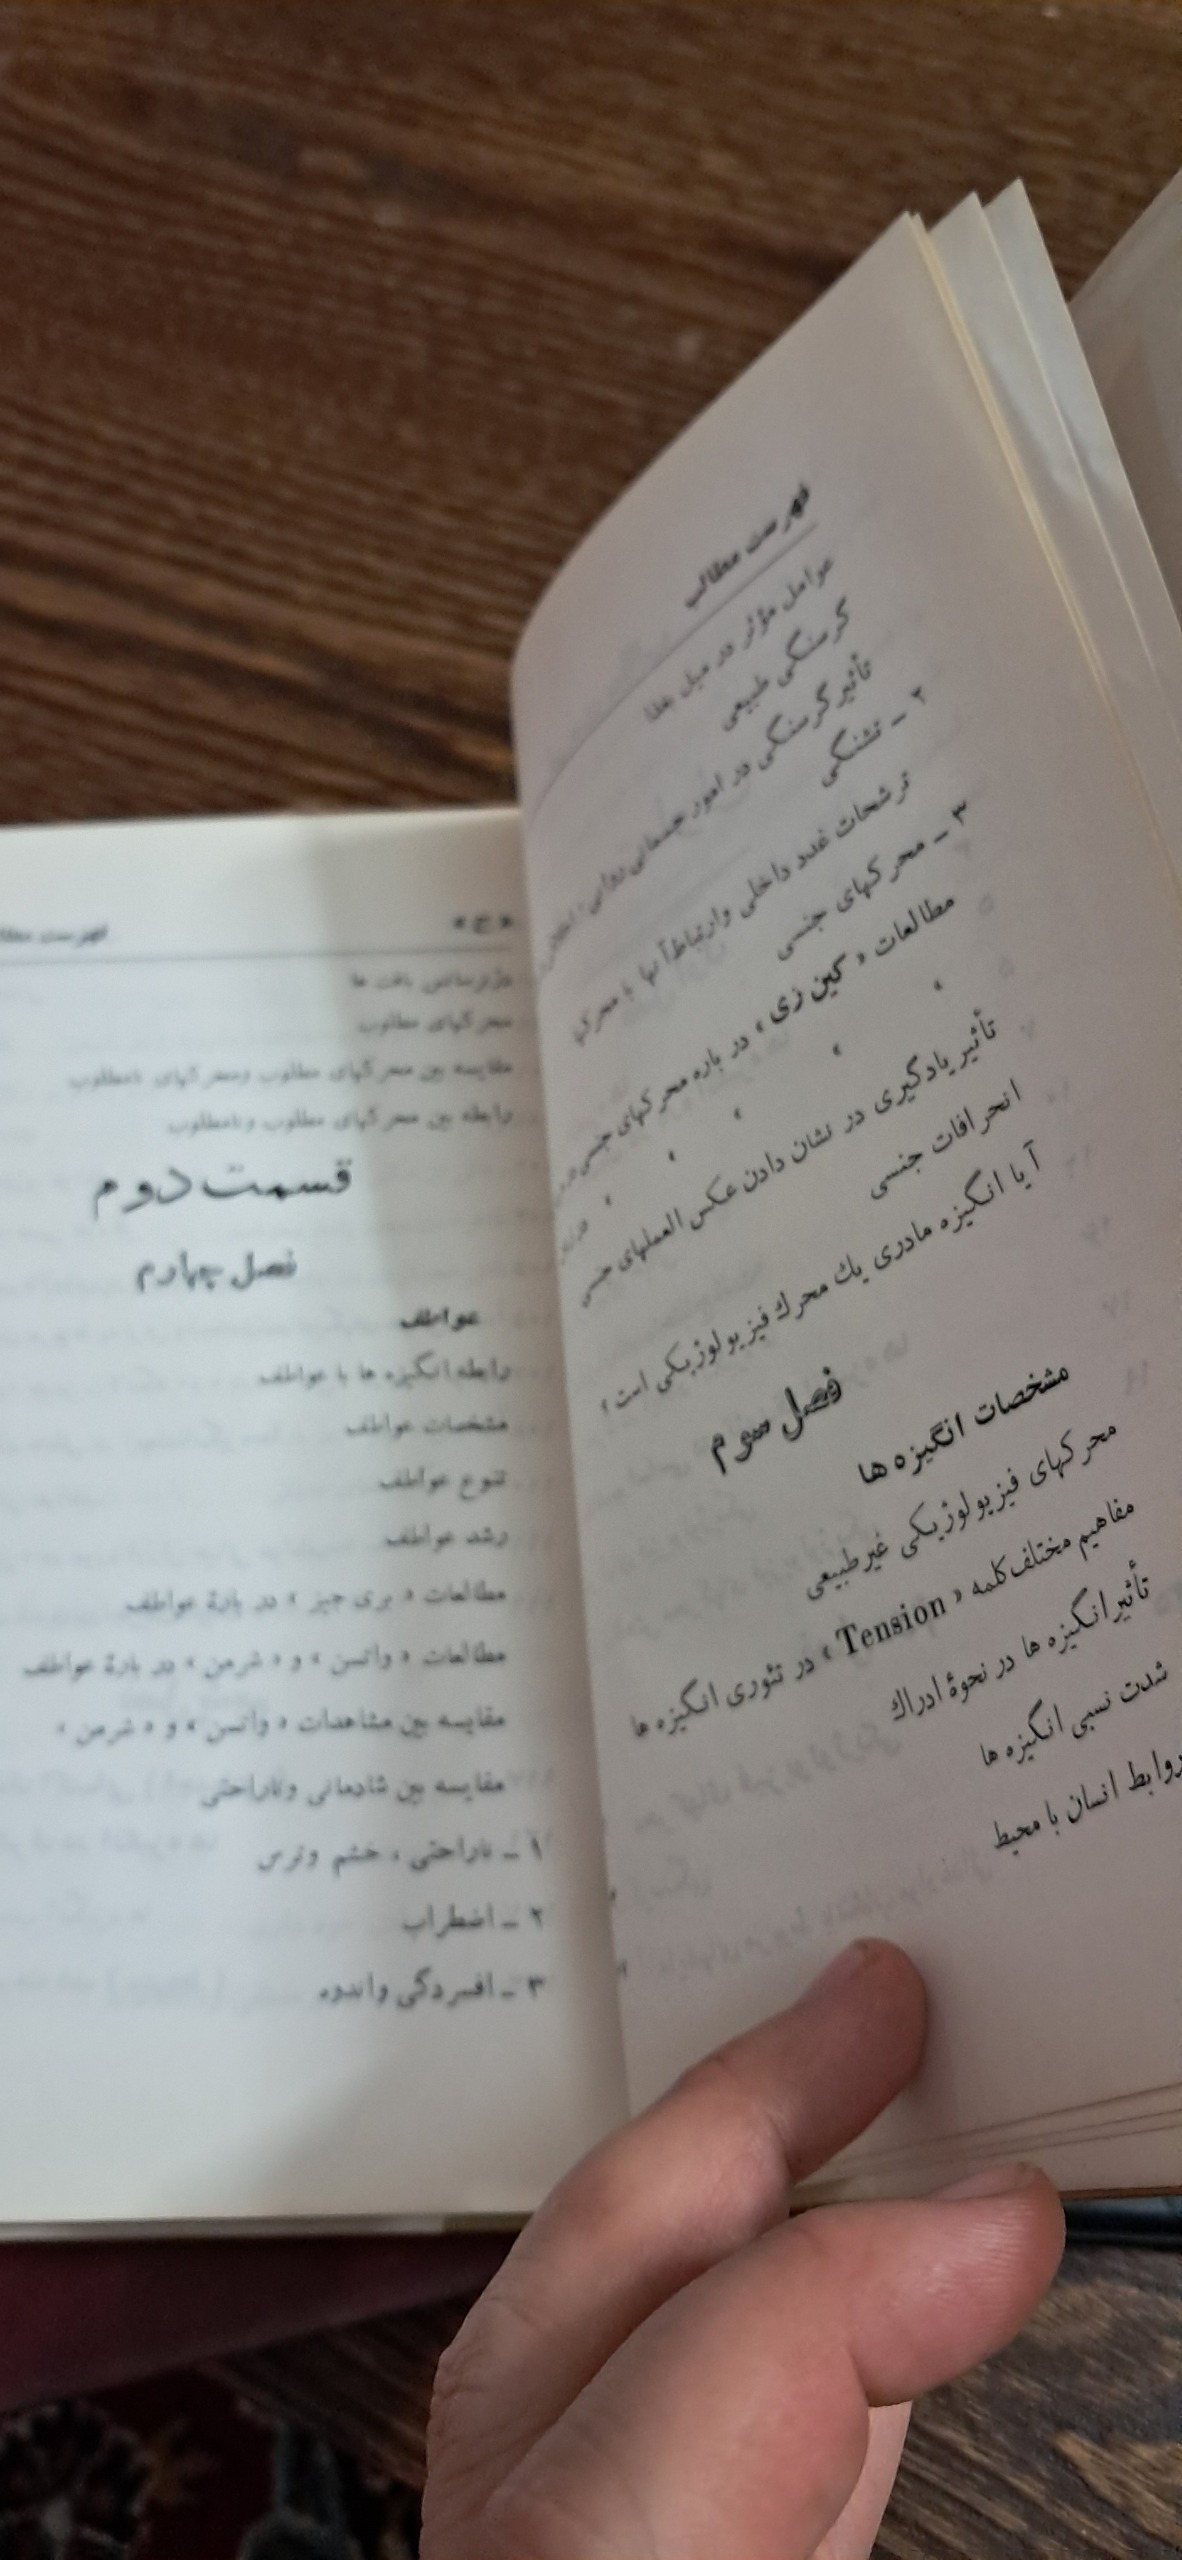 فهرست مطالب
عوامل مؤثر در میل بغذا
گرسنگی طبیعی
تأثیر گرسنگی در امور جسمانی
۲ - تشنگی
ترشحات غدد داخلی و ارتباط آنها با محرکهای
۳ - محرکهای جنسی
مطالعات « کین زی » در باره محرکهای جنسی
تأثیر یادگیری در نشان دادن عکس العملهای جنسی
انحرافات جنسی
آیا انگیزه مادری یك محرك فیزیولوژیکی است ؟
فصل سوم
مشخصات انگیزه ها
محرکهای فیزیولوژیکی غیرطبیعی
مفاهیم مختلف کلمه « Tension » در تئوری انگیزه ها
تأثیر انگیزه ها در نحوۀ ادراك
شدت نسبی انگیزه ها
روابط انسان با محیط
« ج » فهرست
محرکهای مطلوب
مقایسه بین محرکهای مطلوب ومحرکهای نامطلوب
رابطه بین محرکهای مطلوب ونامطلوب
قسمت دوم
فصل چهارم
عواطف
رابطه انگیزه ها با عواطف
مشخصات عواطف
تنوع عواطف
رشد عواطف
مطالعات « بری جیز » در بارۀ عواطف
مطالعات « واتسن » و « شرمن » در بارۀ عواطف
مقایسه بین مشاهدات « واتسن » و « شرمن »
مقایسه بین شادمانی وناراحتی
۱ - ناراحتی ، خشم وترس
۲ - اضطراب
۳ - افسردگی واندوه